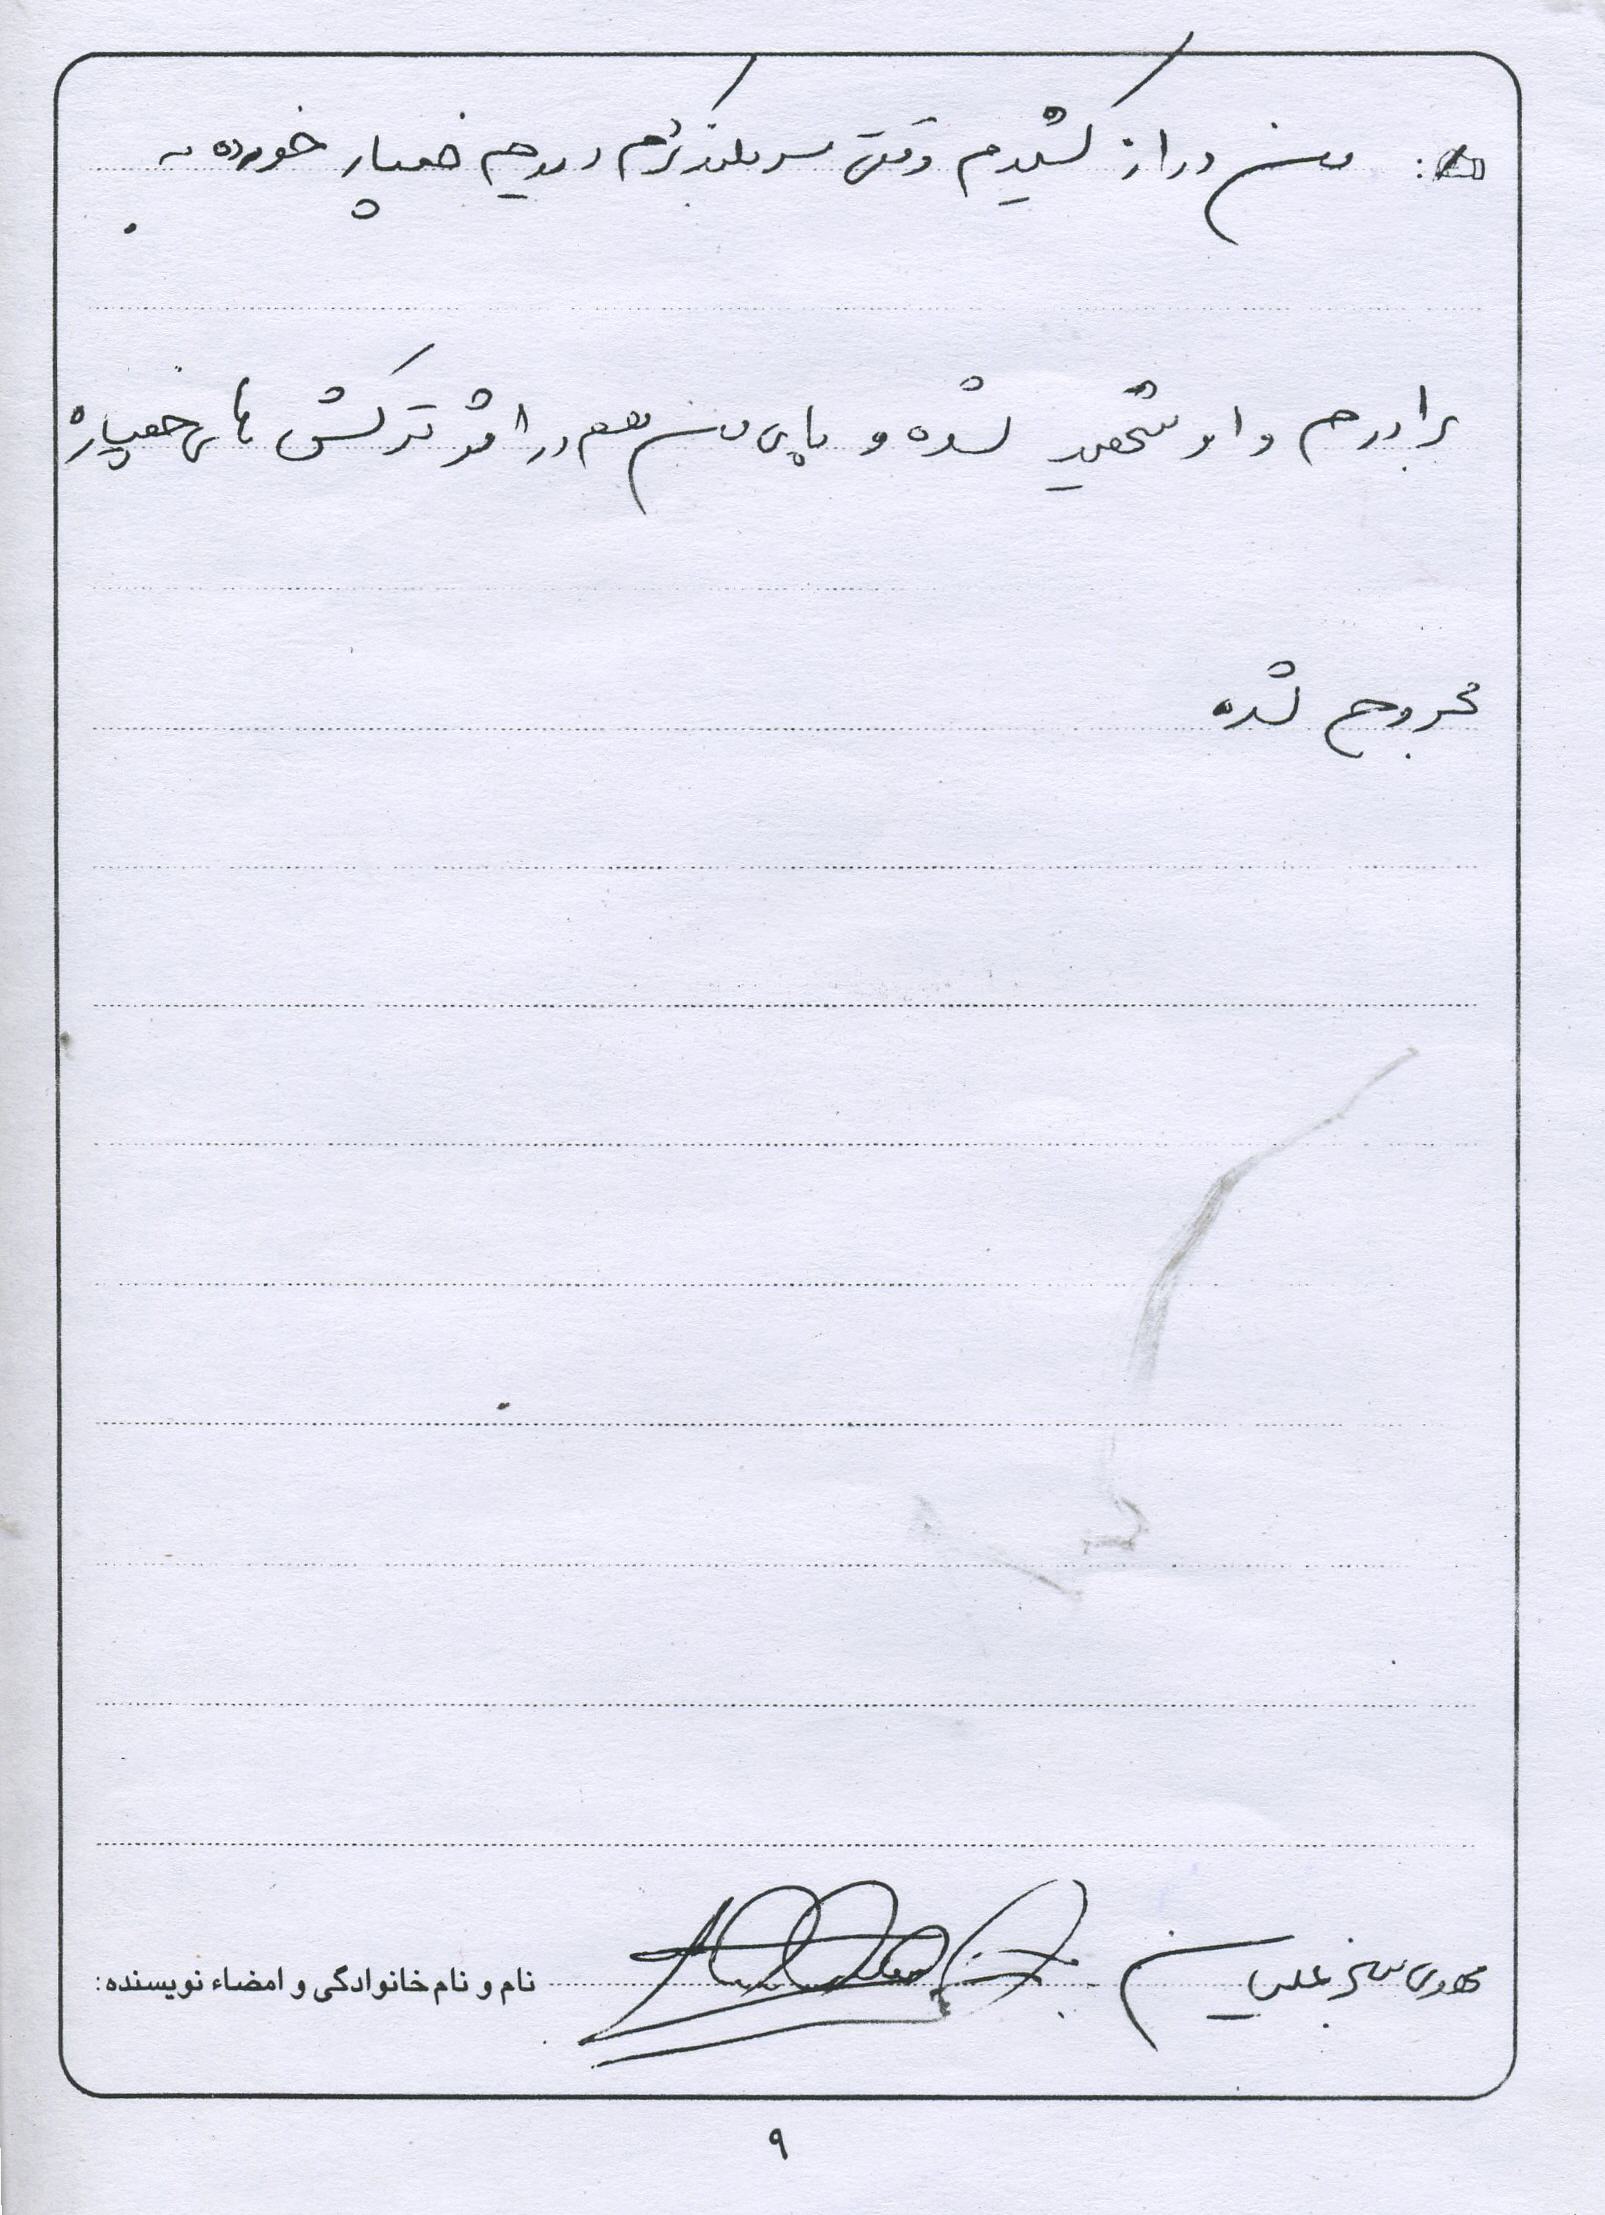 من دراز کشیدم وقتی سر بلند کردم دیدم خمپاره خورده به
برادرم و او شهید شده و پای من هم در اثر ترکش های خمپاره
مجروح شده
نام و نام خانوادگی و امضاء نویسنده: مهدی سبزعلیان
۹